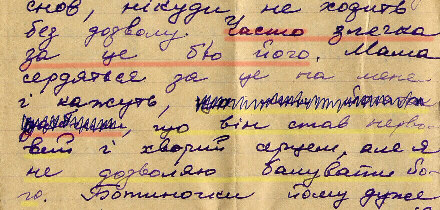 снов, нікуди не ходить
без дозволу. Часто злегка
за це б'ю його. Мама
сердяться за це на мене
і кажуть,
що він став нерво-
вий і хворий серцем, але я
не дозволяю балувати йо-
го. Ботиночки йому дуже